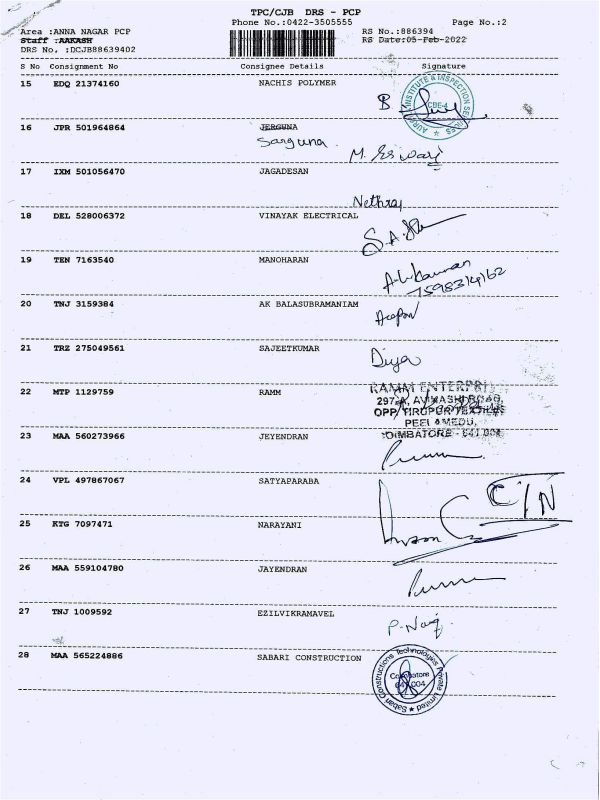 TPC/CJB DRS - PCP
Area :ANNA NAGAR PCP Phone No.:0422-3505555 Page No.:2
Staff :AAKASH RS No.:886394
DRS No. :DCJB88639402 RS Date:05-Feb-2022
S No Consignment No Consignee Details Signature
15 EDQ 21374160 NACHIS POLYMER
CBE-4
16 JPR 501964864 JERGUNA
Sarguna M. Eswari
17 IXM 501056470 JAGADESAN
Nethraj
18 DEL 528006372 VINAYAK ELECTRICAL
19 TEN 7163540 MANOHARAN
7598314162
20 TNJ 3159384 AK BALASUBRAMANIAM
21 TRZ 275049561 SAJEETKUMAR
Diya
22 MTP 1129759 RAMM
RAMM ENTERPRI
297/A, AVINASHI ROAD,
OPP. TIRUPUR TEXTILES
PEELAMEDU,
COIMBATORE - 641 004
23 MAA 560273966 JEYENDRAN
24 VPL 497867067 SATYAPARABA
C/N
25 KTG 7097471 NARAYANI
26 MAA 559104780 JAYENDRAN
27 TNJ 1009592 EZILVIKRAMAVEL
28 MAA 565224886 SABARI CONSTRUCTION
Sabari Constructions Technologies Private Limited
Coimbatore
641 004